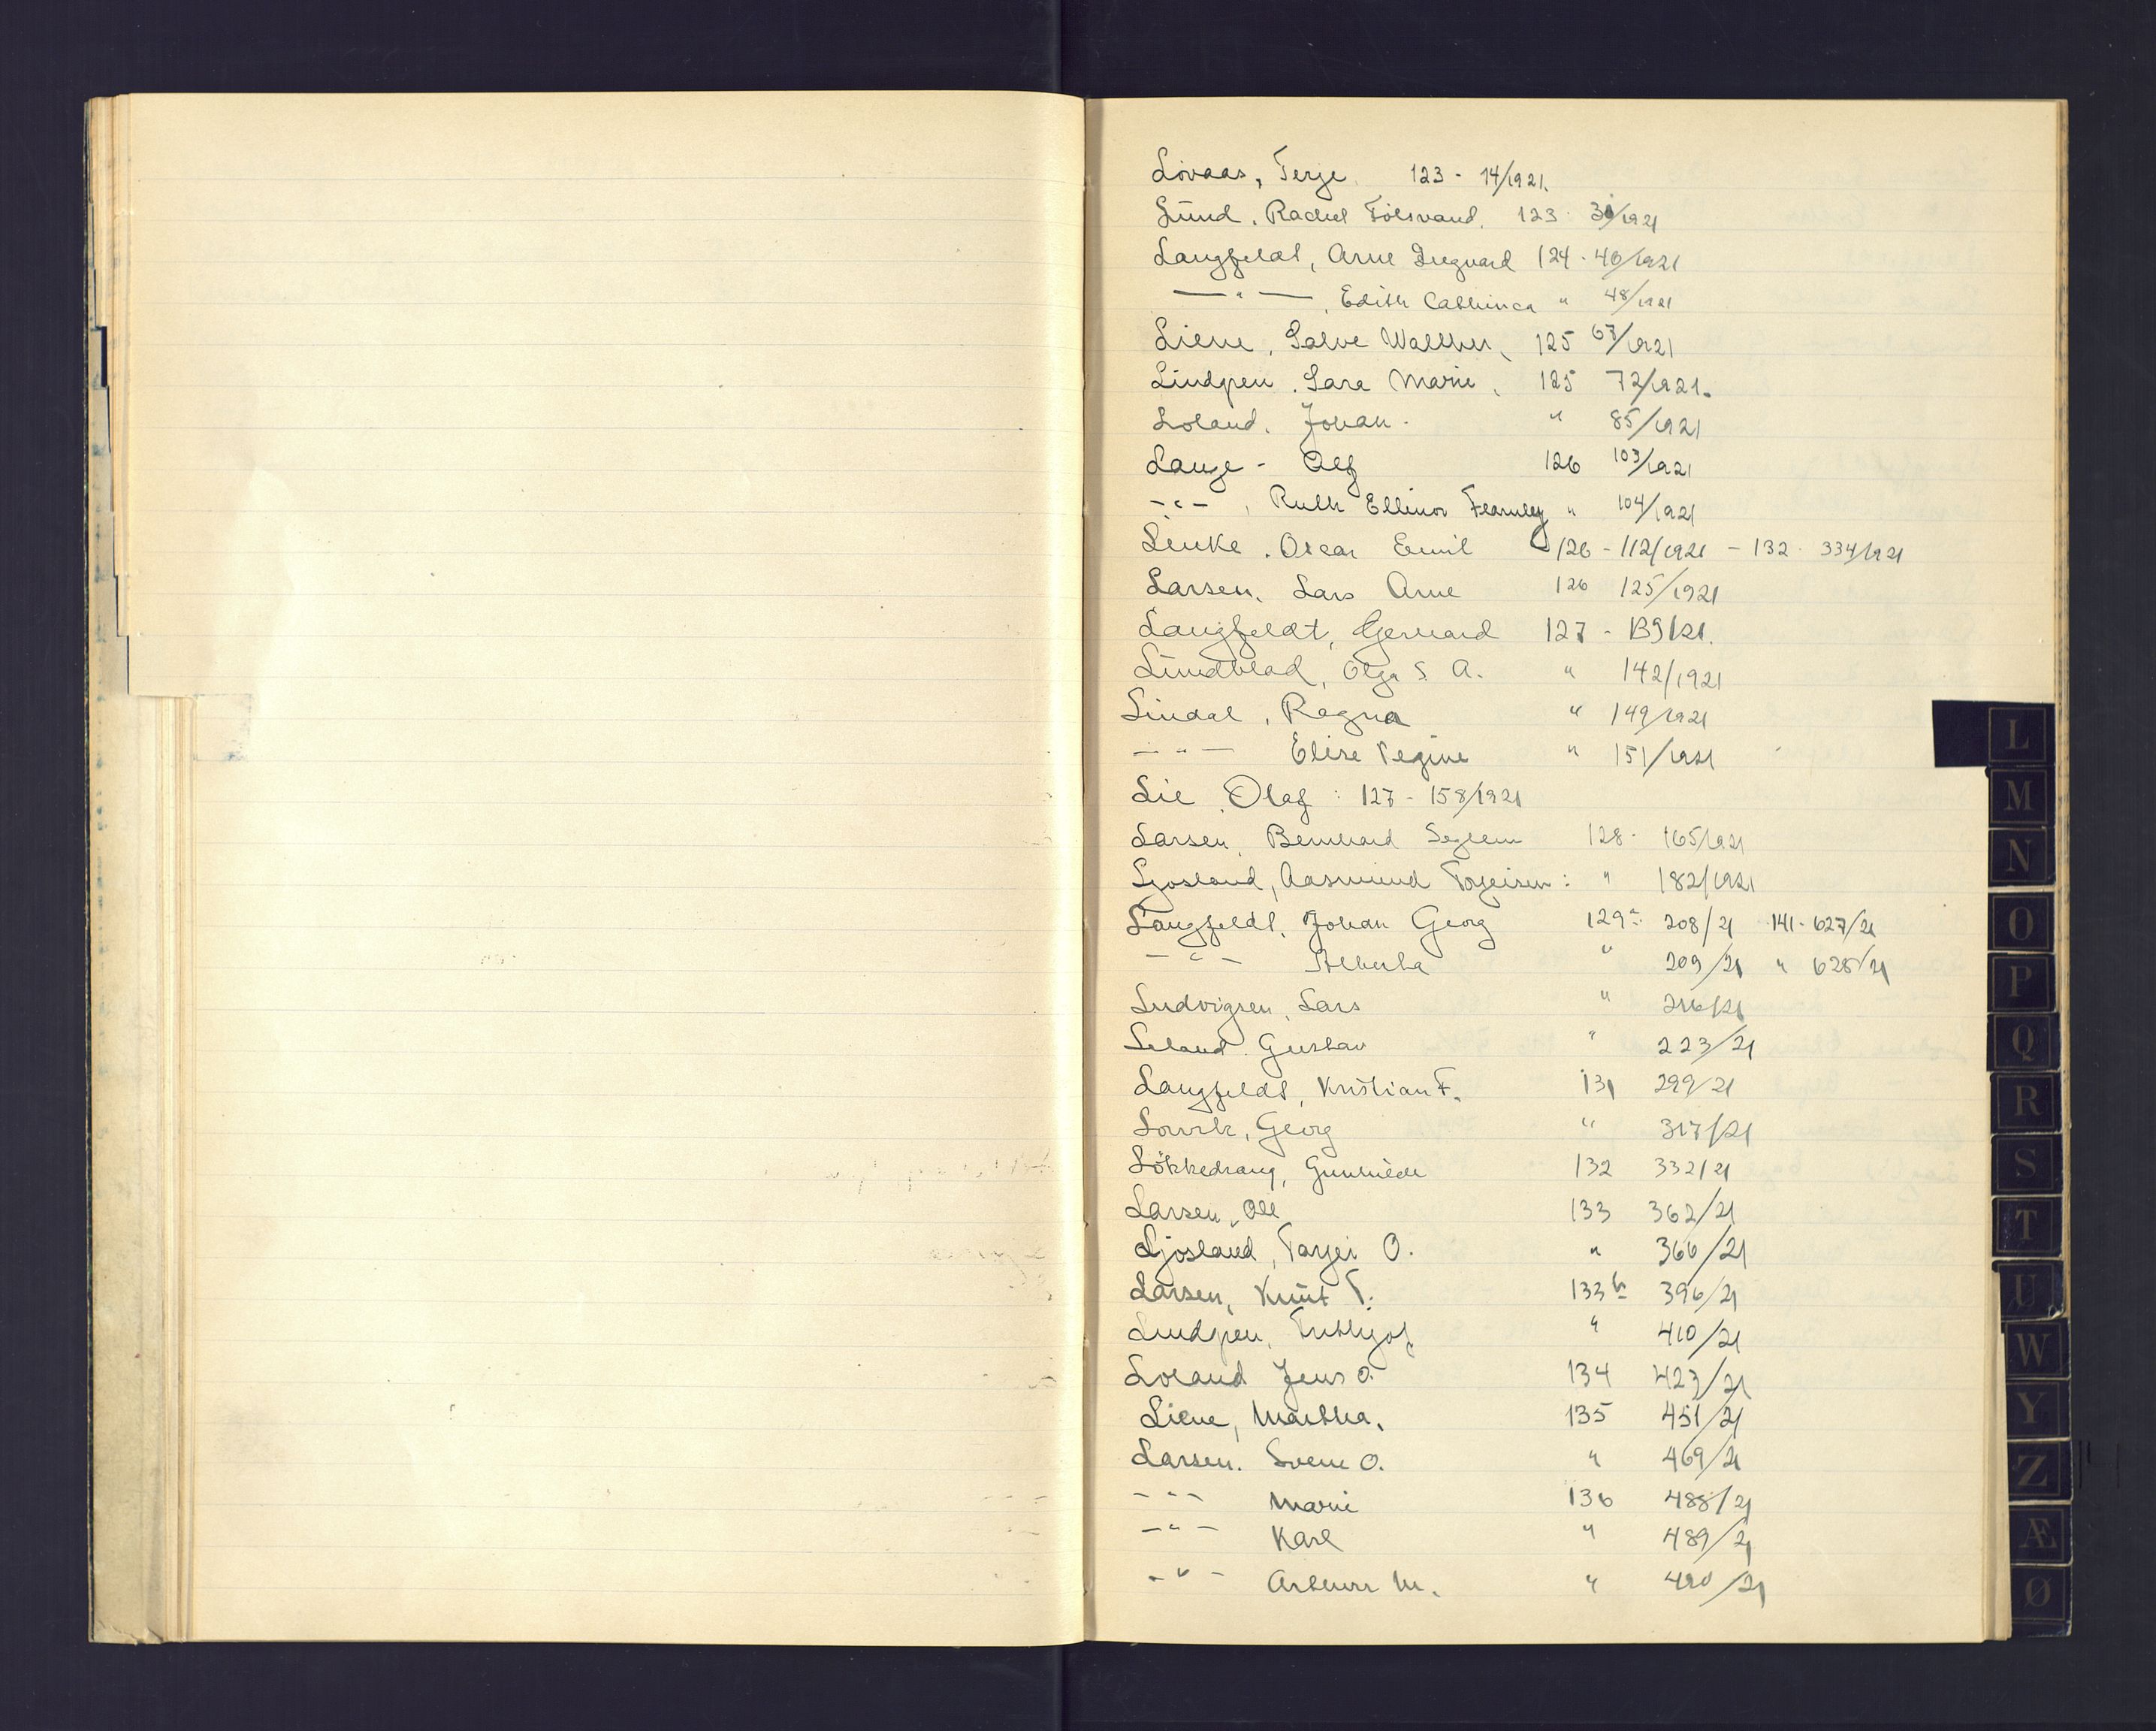 Lövaas, Terje 123 - 14/1921.
Lund. Rachel Fölsvand. 123 30/1921
Langfeldt, Arne Dregvard 124 - 46/1921
— " — , Edith Cathinca " 48/1921
Liene, Salve Walther, 125 67/1921
Lindgren. Sara Marie, 125 72/1921.
Loland. Johan. " 85/1921
Lange - Alf 126 103/1921
- " - , Ruth Ellinor Fearnley " 104/1921
Linke. Oscar Emil 126 - 112/1921 - 132 - 334/1921
Larsen. Lars Arne 126 125/1921
Langfeldt, Gerhard 127 - 139/21.
Lundblad, Olga S. A. " 142/1921
Lindal, Ragna " 149/1921
— " — Elise Tegine " 151/1921
Lie, Olaf : 127 - 158/1921
Larsen, Bernhard Seglem 128 - 165/1921
Ljosland, Aasmund Torjeisen : " 182/1921
Langfeldt, Johan Georg 129 - 208/21 141 - 627/21
— " — Alberta " 209/21 " 628/21
Ludvigsen, Lars " 216/21
Leland Gustav " 223/21
Langfeldt, Kristian F. 131 299/21
Georg " 317/21
Lökkedrang, Gunhilde 132 332/21
Larsen, Ole 133 362/21
Ljosland, Tarjei O. " 366/21
Larsen, Knut T. 133 b 396/21
Lindgren, Frithjof. " 410/21
Loland Jens O. 134 423/21
Liene, Martha. 135 451/21
Larsen. Svein O. " 469/21
- " - Marie 136 488/21
— " — Karl " 489/21
- " - Arthur M. " 490/21
L
M
N
O
P
Q
R
S
T
U
W
Y
Z
Æ
Ø